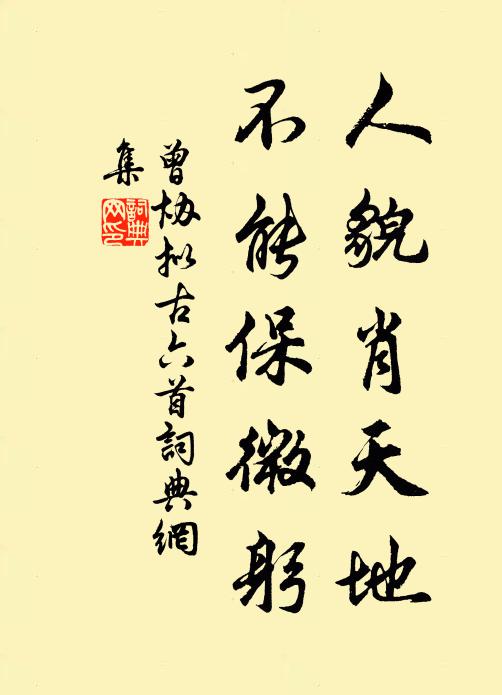 人貌肖天地
不能保微躬
曾协拟古六首词典網
集
詞典網印